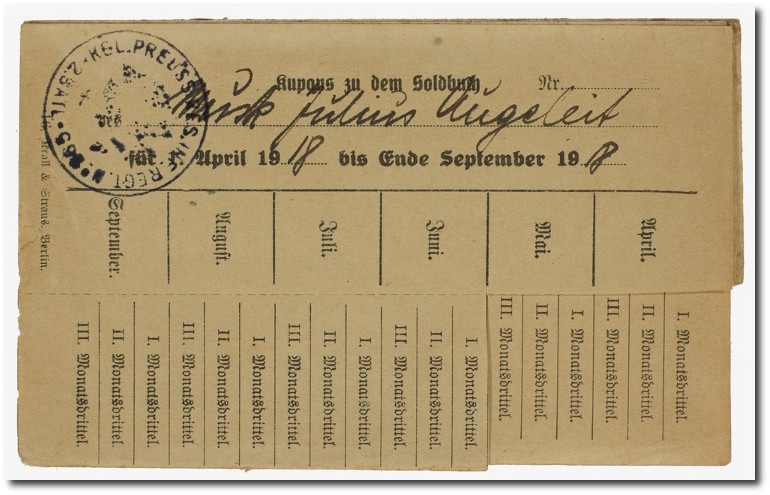 Kupons zu dem Soldbuch Nr.
des Musk Julius Augeleit
für 1. April 1918 bis Ende September 1918
2. BATL. KGL. PREUSS. RES. INF. REGT. No 265
Krall & Straus, Berlin.
September. August. Juli. Juni. Mai. April.
III. Monatsdrittel. II. Monatsdrittel. I. Monatsdrittel. III. Monatsdrittel. II. Monatsdrittel. I. Monatsdrittel. III. Monatsdrittel. II. Monatsdrittel. I. Monatsdrittel. III. Monatsdrittel. II. Monatsdrittel. I. Monatsdrittel. III. Monatsdrittel. II. Monatsdrittel. I. Monatsdrittel. III. Monatsdrittel. II. Monatsdrittel. I. Monatsdrittel.